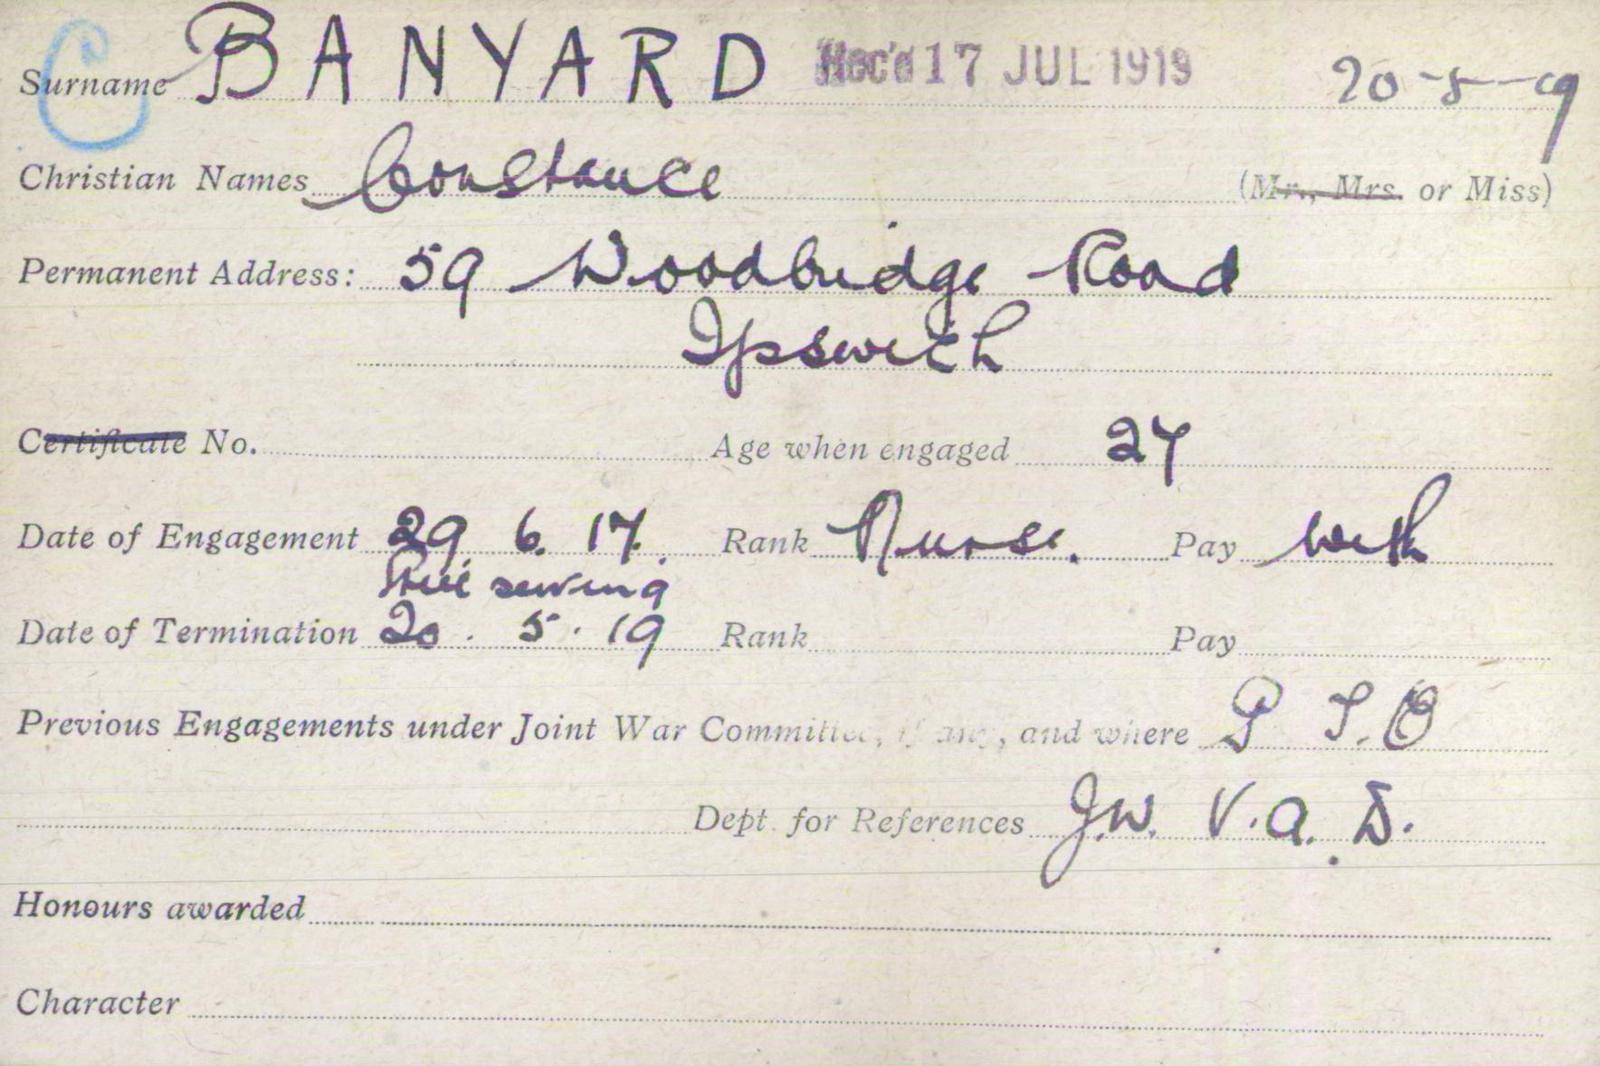 C
Surname BANYARD Rec'd 17 JUL 1919 20-5-19
Christian Names Constance (Mr., Mrs. or Miss)
Permanent Address: 59 Woodbridge Road
Ipswich
Certificate No. Age when engaged 27
Date of Engagement 29. 6. 17. Rank Nurse. Pay with
Still serving
Date of Termination 20. 5. 19 Rank Pay
Previous Engagements under Joint War Committee, if any, and where P T.O
Dept. for References J.W. V.A.D.
Honours awarded
Character